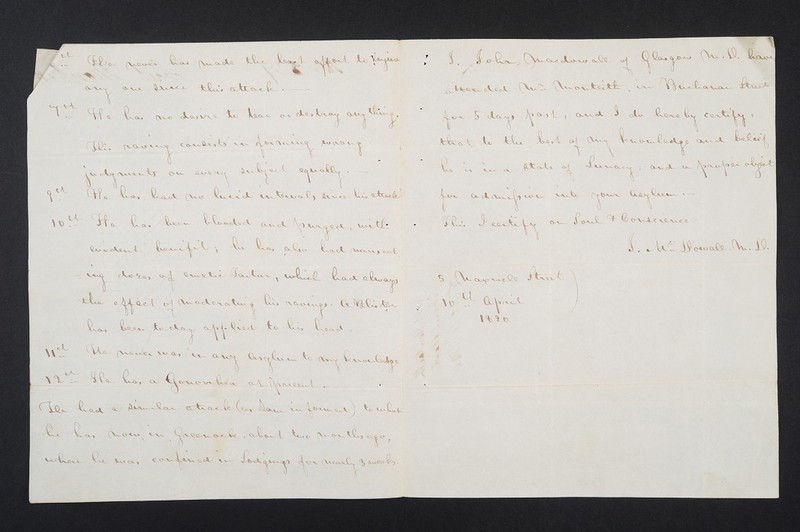 He never has made the least effort to injure
any one since this attack.
He has no desire to tear or destroy anything.
His raving consists in forming wrong
judgments on every subject equally.
9th He has had no lucid intervals since his attack
10th He has been blooded and purged, with
evident benefit; he has also had nauseat
ing doses of emetic Tartar, which had always
the effect of moderating his ravings. A Blister
has been to day applied to his head.
11th He never was in any asylum to my knowledge
12th He has a Gonorrhea at present.
He had a similar attack (as I am informed) to what
he has now, in Greenock, about two months ago,
where he was confined in Lodgings for nearly 3 weeks
I. John Macdowall of Glasgow M.D. have
attended Wm Monteith, in Buchanan Street
for 5 days past, and I do hereby certify,
that to the best of my knowledge and belief
he is in a state of Lunacy, and a proper object
for admission into your asylum.
This I certify on Soul & Conscience
J. McDowall M.D.
5 Maxwell Street
10th April
1820